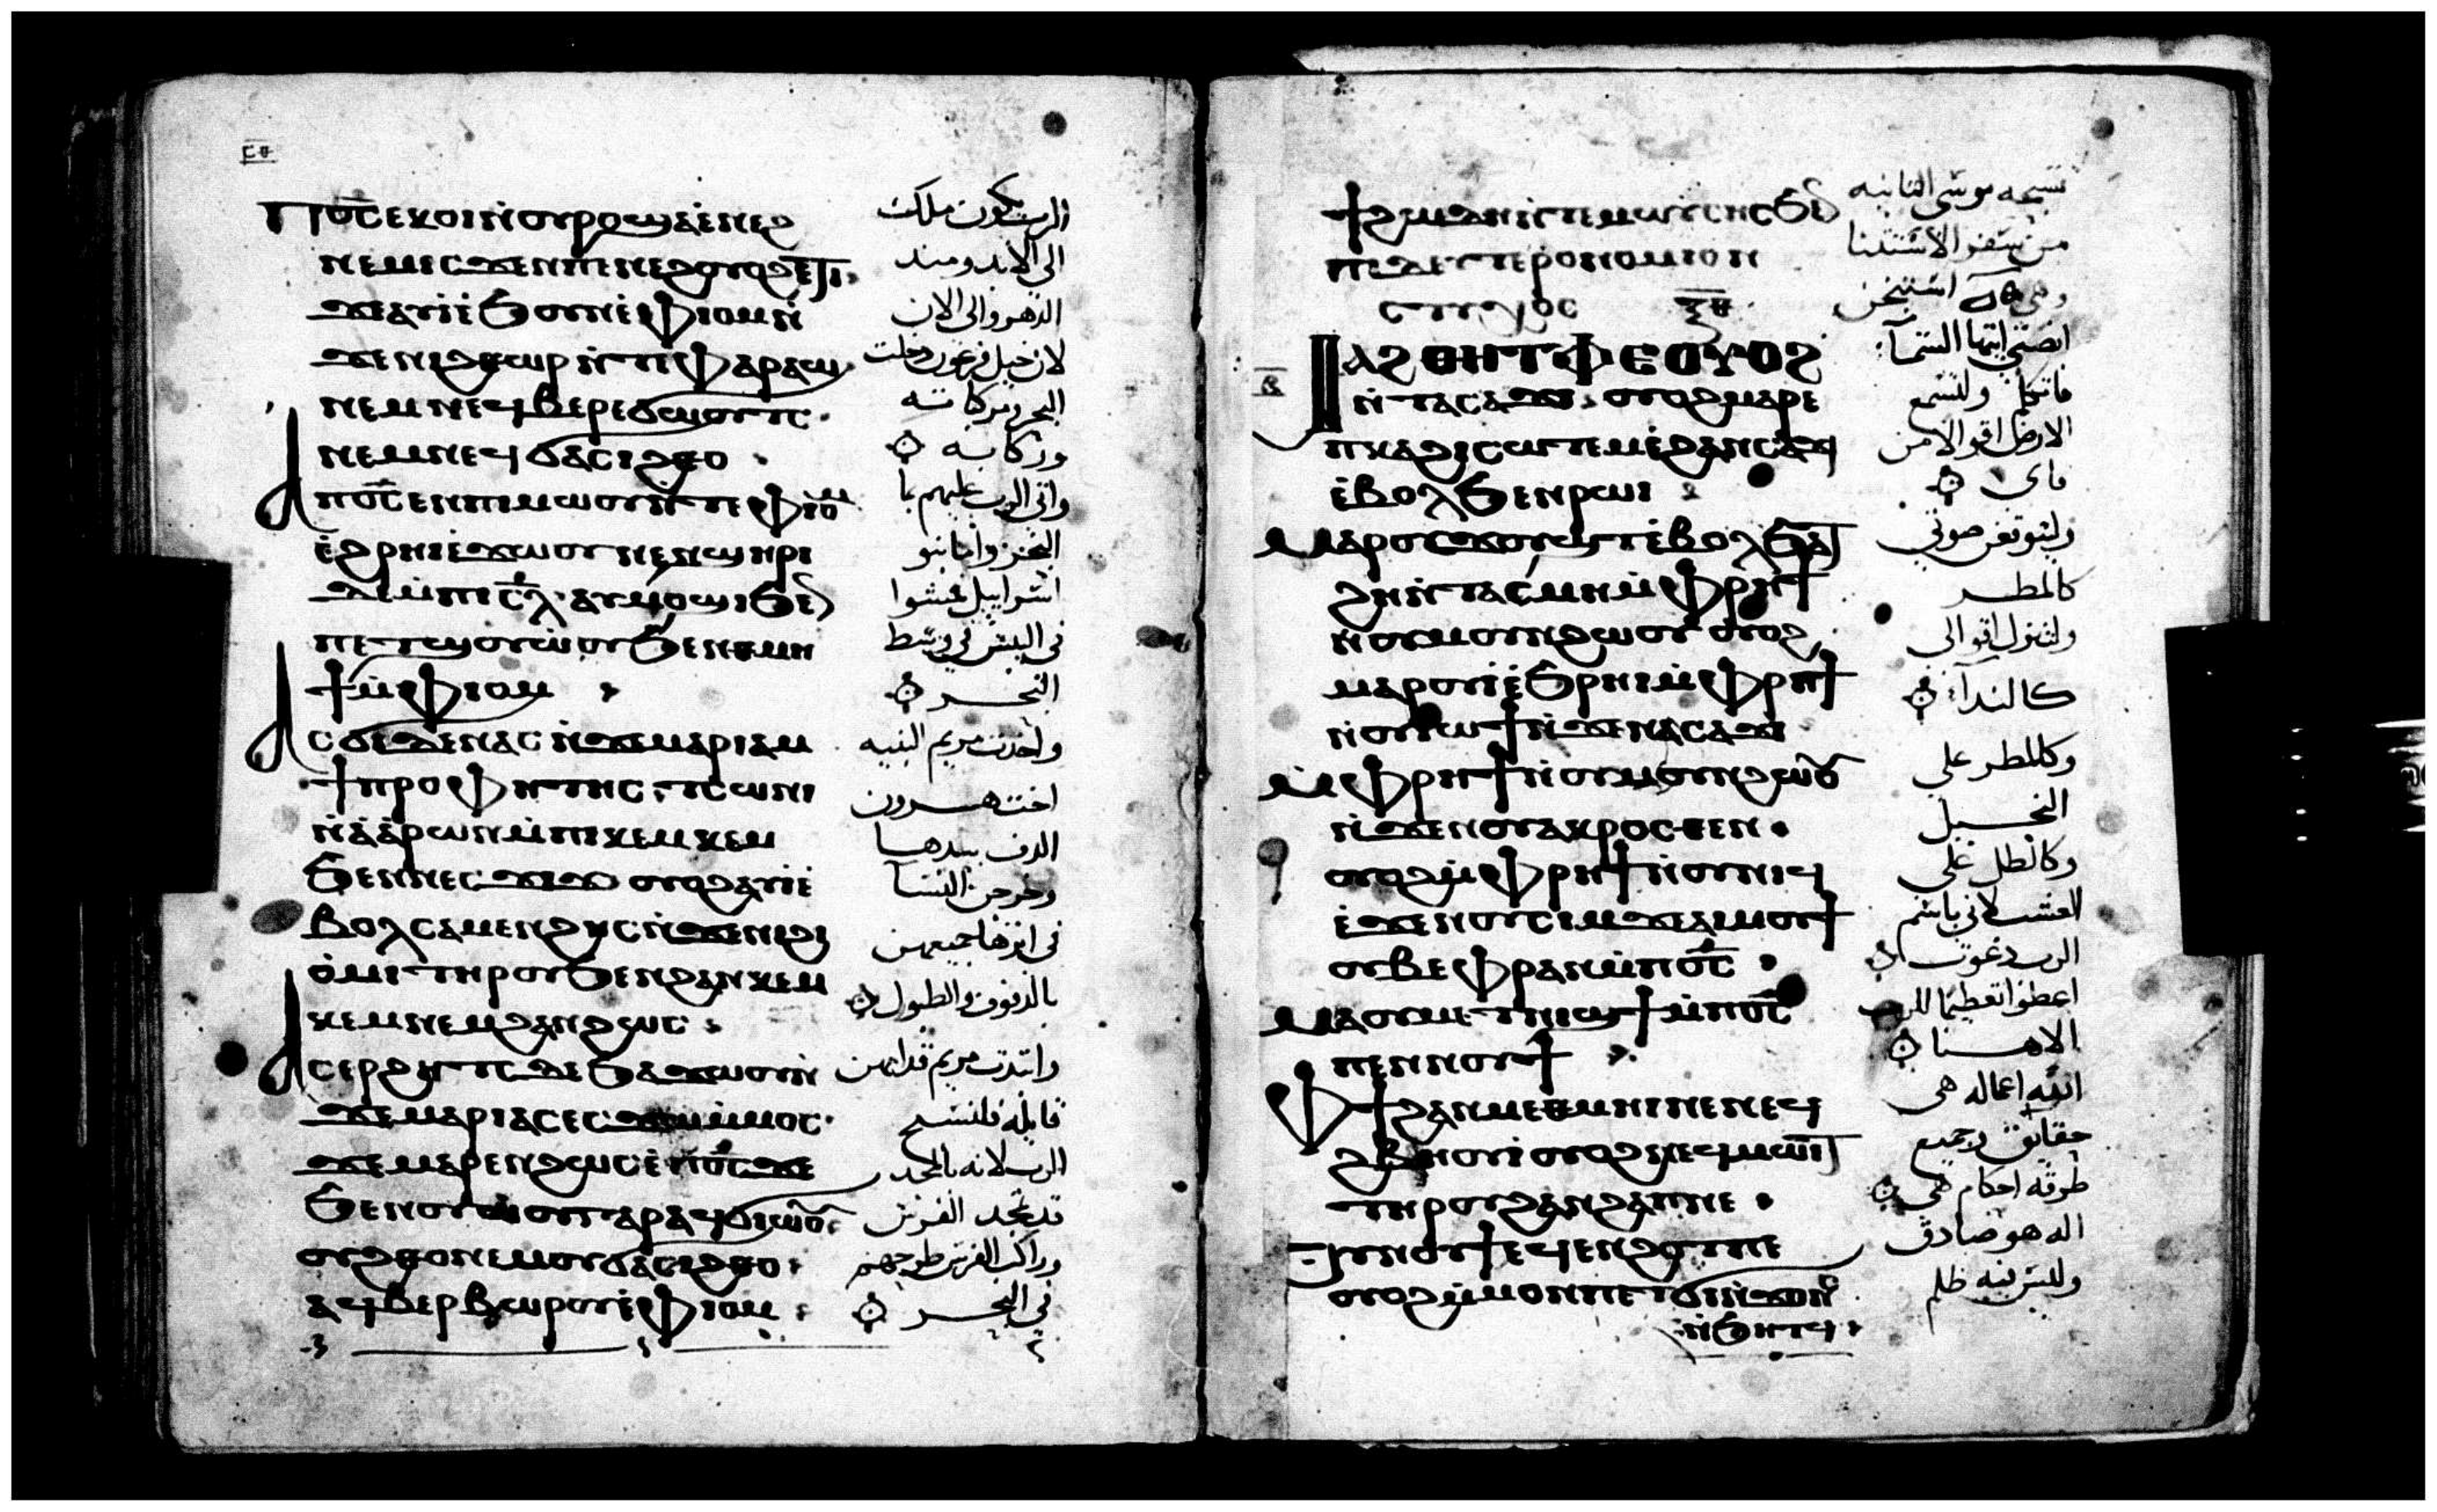 ⲥⲑ
Ⲡⲟ̅ⲥ̅ ⲉⲕⲟⲓ ⲛⲟⲩⲣⲟ ϣⲁ ⲉⲛⲉϩ
ⲛⲉⲙ ⲓⲥϫⲉⲛ ⲡⲓⲉⲛⲉϩ ⲟⲩⲟϩ ⲉϯ
ϫⲉ ⲁⲩⲓ ⲉϧⲟⲩⲛ ⲉⲫⲓⲟⲙ ⲛ
ϫⲉ ⲛⲓϩⲑⲱⲣ ⲛⲧⲉ ⲫⲁⲣⲁⲱ
ⲛⲉⲙ ⲛⲉϥⲃⲉⲣⲉϭⲱⲟⲩⲧⲥ
ⲛⲉⲙ ⲛⲉϥϭⲁⲥⲓϩⲑⲟ
Ⲁ ⲡⲟ̅ⲥ̅ ⲉⲛ ⲡⲓⲙⲱⲟⲩ ⲛⲧⲉ ⲫⲓⲟⲙ
ⲉϩⲣⲏⲓ ⲉϫⲱⲟⲩ ⲛⲉⲛϣⲏⲣⲓ
ⲇⲉ ⲙⲡⲓⲥ̅ⲗ̅ ⲁⲩⲙⲟϣⲓ ϧⲉⲛ
ⲡⲉⲧϣⲟⲩⲱⲟⲩ ϧⲉⲛ ⲑⲙⲏ
ϯ ⲙⲫⲓⲟⲙ
Ⲁⲥϭⲓ ⲇⲉ ⲛⲁⲥ ⲛϫⲉ ⲙⲁⲣⲓⲁⲙ
ϯⲡⲣⲟⲫⲏⲧⲏⲥ ⲧⲥⲱⲛⲓ
ⲛⲁⲁⲣⲱⲛ ⲙⲡⲓⲕⲉⲙⲕⲉⲙ
ϧⲉⲛ ⲛⲉⲥϫⲓϫ ⲟⲩⲟϩ ⲁⲩⲓ ⲉ
ⲃⲟⲗ ⲥⲁⲙⲉⲛϩⲏⲥ ⲛϫⲉ ⲛⲓϩⲓ
ⲟⲙⲓ ⲧⲏⲣⲟⲩ ϧⲉⲛ ϩⲁⲛⲕⲉⲙ
ⲕⲉⲙ ⲛⲉⲙ ϩⲁⲛϩⲱⲥ
Ⲁⲥⲉⲣϩⲏⲧⲥ ⲇⲉ ϧⲁϫⲱⲟⲩ ⲛ
ϫⲉ ⲙⲁⲣⲓⲁ ⲥⲉⲥϫⲱ ⲙⲙⲟⲥ
ϫⲉ ⲙⲁⲣⲉⲛϩⲱⲥ ⲉⲡⲟ̅ⲥ̅ ϫⲉ
ϧⲉⲛ ⲟⲩⲱⲟⲩ ⲅⲁⲣ ⲁϥϭⲓⲱⲟⲩ
ⲟⲩϩⲑⲟ ⲛⲉⲙ ⲟⲩϭⲁⲥⲓϩⲑⲟ
ⲁϥⲃⲉⲣⲃⲱⲣⲟⲩ ⲉⲫⲓⲟⲙ
الرب يكون ملك
الى الابد ومند
الدهر والى الان
لان خيل فرعون دخلت
البحر مركباته
وركابه
واتى الرب عليهم بما
البحر وابنا بنو
اسراييل فمشوا
في اليبس في وسط
البحـر
واخدت مريم النبيه
اخت هـرون
الدف بيدهـا
وخرجن النسا
في اثرها جميعهن
بالدفوف والطبول
وابتدت مريم قدامهن
قايله فلنسبح
الرب لانه بالمجد
قد تمجد الفرس
وراكب الفرس طرحهم
في البحـر
ϯϩⲱⲇⲏ ⲛⲧⲉ ⲙⲱⲩⲥⲏⲥ ϧⲉⲛ
ⲡⲓⲇⲉⲩⲧⲉⲣⲟⲛⲟⲙⲓⲟⲛ
ⲥⲧⲩⲭⲟⲥ ⲝ̅ⲑ̅
ⲃ
Ⲙⲁϩⲑⲏ ⲧⲫⲉ ⲟⲩⲟϩ
ⲛⲧⲁⲥⲁϫⲓ ⲟⲩⲟϩ ⲙⲁⲣⲉ
ⲡⲕⲁϩⲓ ⲥⲱⲧⲉⲙ ⲉϩⲁⲛⲥⲁϫⲓ
ⲉⲃⲟⲗϧⲉⲛ ⲣⲱⲓ
Ⲙⲁⲣⲟⲩϫⲟⲩϣⲧ ⲉⲃⲟⲗ ϧⲁϫ
ϩⲏ ⲛⲧⲁⲥⲙⲏ ⲙⲫⲣⲏϯ
ⲛⲟⲩⲙⲟⲩⲛϩⲱⲟⲩ ⲟⲩⲟϩ
ⲙⲁⲣⲟⲩⲓ ⲉϧⲣⲏⲓ ⲙⲫⲣⲏϯ
ⲛⲟⲩⲓⲱϯ ⲛϫⲉ ⲛⲁⲥⲁϫⲓ
Ⲙⲫⲣⲏϯ ⲛⲟⲩⲙⲟⲩⲛϩⲱⲟⲩ
ⲛϫⲉⲛ ⲟⲩⲁⲕⲣⲟⲥⲧⲉⲛ
ⲟⲩⲟϩ ⲙⲫⲣⲏϯ ⲛⲟⲩⲛⲓϥ
ⲉϫⲉⲛ ⲟⲩⲥⲓⲙ ϫⲉ ⲁⲓⲙⲟⲩϯ
ⲟⲩⲃⲉ ⲫⲣⲁⲛ ⲙⲡⲟ̅ⲥ̅
Ⲙⲁ ⲟⲩⲙⲉⲧⲛⲓϣϯ ⲙⲡⲟ̅ⲥ̅
ⲡⲉⲛⲛⲟⲩϯ
Ⲫϯ ϩⲁⲛⲙⲉⲑⲙⲏⲓ ⲛⲉ ⲛⲉϥ
ϩⲃⲏⲟⲩⲓ ⲟⲩⲟϩ ⲛⲉϥⲙⲱⲓⲧ
ⲧⲏⲣⲟⲩ ϩⲁⲛϩⲁⲡ ⲛⲉ
ⲟⲩⲛⲟⲩϯ ⲉϥⲉⲛϩⲟⲧ ⲡⲉ
ⲟⲩⲟϩ ⲙⲙⲟⲛ ⲡⲉⲧϭⲓⲛϫⲟⲛⲥ
ⲛϧⲏⲧϥ
تسبحه موسى الثانيه
من سفر الاستثنا
وهى استيخن
انصتي ايتها السما
فاتكلم ولتسمع
الارض اقوالا من
فاى
وليتوقعن صوتي
كالمطـر
ولتنزل اقوالى
كالندا
وكالمطر على
النجـيل
وكالطل على
العشب لاني باسم
الرب دعوت
اعطوا تعظيما للرب
الاهنـا
الله اعماله هى
حقايق وجميع
طرقه احكام هى
اله هو صادق
وليس فيه ظلم